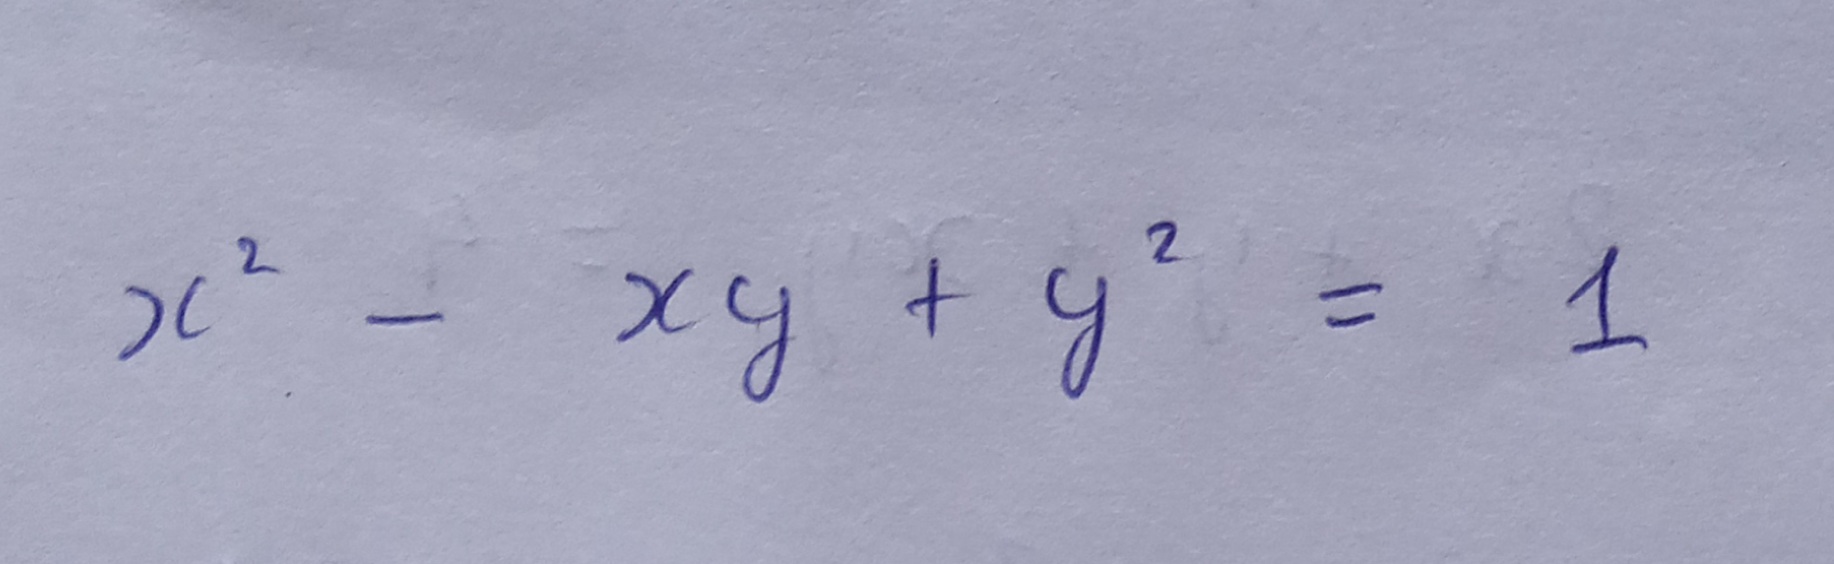 x² - xy + y² = 1